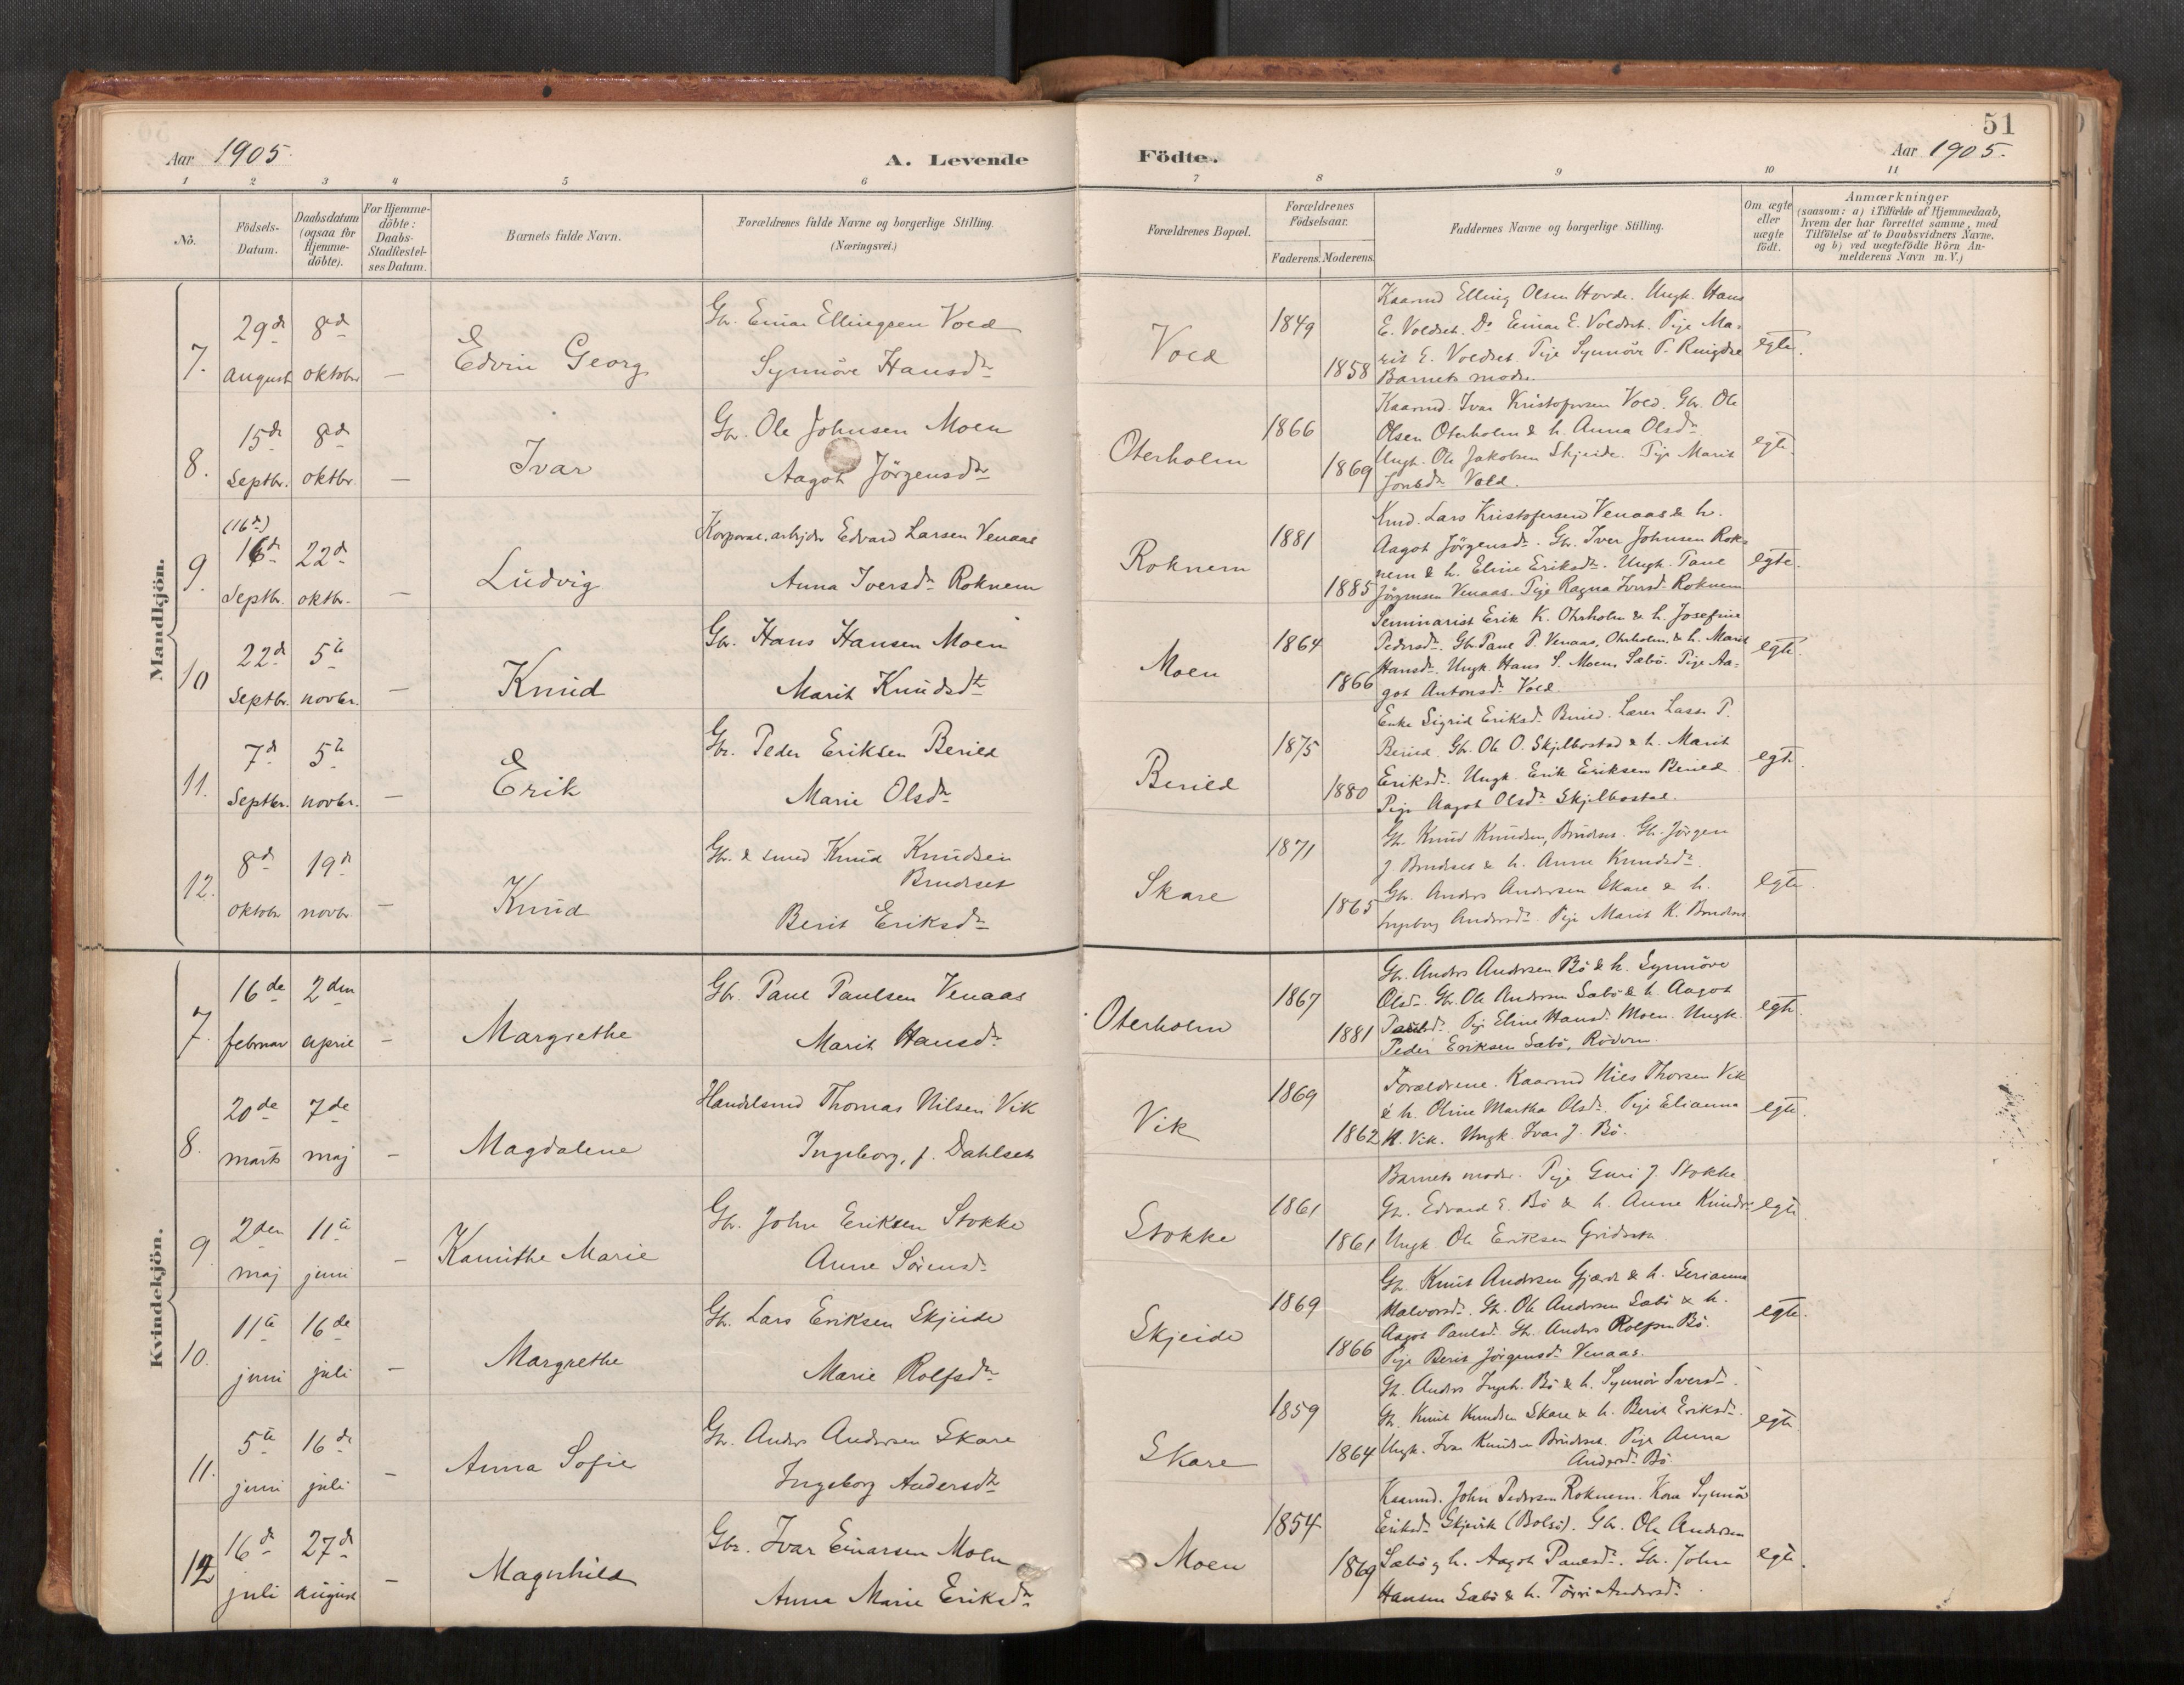 51
Aar 1905.
A. Levende
Födte.
Aar 1905.
1 2 3 4 5 6 7 8 9 10 11
No.
Födsels-
Datum.
Daabsdatum
(ogsaa for
Hjemme-
döbte).
For Hjemme-
döbte:
Daabs-
Stadfæstel-
ses Datum.
Barnets fulde Navn.
Forældrenes fulde Navne og borgerlige Stilling.
(Næringsvei.)
Forældrenes Bopæl.
Forældrenes
Födselsaar.
Faderens. Moderens.
Faddernes Navne og borgerlige Stilling.
Om ægte
eller
uægte
födt.
Anmærkninger
(saasom: a) i Tilfælde af Hjemmedaab,
hvem der har forrettet samme, med
Tilföielse af to Daabsvidners Navne,
og b) ved uægtefödte Börn An-
melderens Navn m. V.)
Mandkjön.
7.
29de
august
8de
oktober
—
Edvin Georg
Gbr. Einar Ellingsen Vold
Synnöve Hansdtr
Vold
1849
1858
Kaarmd Elling Olsen Hovde. Ungk. Hans
E. Voldset. Do Einar E. Voldset. Pige Ma-
rit E. Voldset. Pige Synnöve P.
Barnets moder.
egte.
8.
15de
Septbr.
8de
oktbr.
—
Ivar
Gbr. Ole Johnsen Moen
Aagot Jörgensdtr
Oterholm
1866
1869
Kaarmd. Ivar Kristofersen Vold. Gbr. Ole
Olsen Oterholm & h. Anna Olsdtr
Ungk. Ole Jakobsen Skjeide. Pige Marit
Jonsdtr Vold.
egte.
9.
(16de)
16de
Septbr.
22de
oktbr.
—
Ludvig
Korporal, arbejder Edvard Larsen Venaas
Anna Iversdtr Roknem
Roknem
1881
1885
Lars Kristofersen Venaas & h.
Aagot Jörgensdtr. Gbr. Iver Johnsen Rok-
nem & h. Eline Eriksdtr. Ungk. Paul
Jörgensen Venaas. Pige Ragna Iversd. Roknem
egte.
10
22de
Septbr.
5te
novbr.
—
Knud
Gbr. Hans Hansen Moen
Marit Knudsdtr
Moen
1864
1866
Seminarist Erik K. Oterholm & h. Josefine
Pedersdtr. Gbr. Paul P. Venaas, Oterholm, & h. Marit
Hansdtr. Ungk. Hans S. Moen, Sæbö. Pige Aa-
got Antonsdtr Vold.
egte.
11.
7de
Septbr.
5te
novbr.
—
Erik
Gbr. Peder Eriksen Berild
Marie Olsdtr
Berild
1875
1880
Enke Sigrid Eriksd. Berild. Lærer Lasse P.
Berild. Gbr. Ole O. Skjelbostad & h. Marit
Eriksdtr. Ungk. Erik Eriksen Berild
Pige Aagot Olsdtr Skjelbostad.
egte.
12.
8de
oktober
19de
novbr
—
Knud
Gbr. & smed Knud Knudsen
Brudeset
Berit Eriksdtr
Skare
1871
1865
Gbr. Knud Knudsen, Brudeset. Gbr. Jörgen
J. Brudeset & h. Anne Knudsdtr.
Gbr. Anders Andersen Skare & h.
Ingeborg Andersdtr. Pige Marit K. Brudeset.
egte.
Kvindekjön.
7.
16de
februar
2den
april
—
Margrethe
Gbr. Paul Paulsen Venaas
Marit Hansdtr.
Oterholm
1867
1881
Gbr. Anders Andersen Bö & h. Synnöve
Olsdtr. Gbr. Ole Andersen Sæbö & h. Aagot
Paulsdtr. Pige Eline Hansd. Moen. Ungk.
Peder Eriksen Sæbö, Rödven.
egte.
8.
20de
marts
7de
maj
—
Magdalene
Handelsmd Thomas Nilsen Vik
Ingeborg, f. Dahlset
Vik
1869
1862
Forældrene. Kaarmd Nils Thorsen Vik
& h. Oline Martha Olsdtr. Pige Elianna
N. Vik. Ungk. Ivar J. Bö.
egte.
9.
2den
maj
11te
juni
—
Kamithe Marie
Gbr. John Eriksen Stokke
Anne Sörensd.
Stokke
1861
1861
Barnets moder. Pige Guri J. Stokke.
Gbr. Edvard E. Bö & h. Anne Knudsdtr.
Ungk. Ole Eriksen Gridset.
egte.
10.
11te
juni
16de
juli
—
Margrethe
Gbr. Lars Eriksen Skjeide
Marie Rolfsdtr
Skjeide
1869
1866
Gbr. Knut Andersen Gjærde & h. Serianna
Halvorsdtr. Gbr. Ole Andersen Sæbö & h.
Aagot Paulsd. Gbr. Anders Rolfsen Bö.
Pige Berit Jörgensdtr Venaas.
egte.
11.
5te
juni
16de
juli
—
Anna Sofie
Gbr. Anders Andersen Skare
Ingeborg Andersdtr
Skare
1859
1864
Gbr. Anders Bö & h. Synnöv Iversdtr.
Gbr. Knut Knudsen Skare & h. Berit Eriksdtr.
Ungk. Ivar Knudsen Brudeset. Pige Anna
Andersd. Bö
egte.
12
16de
juli
27de
august
—
Magnhild
Gbr. Ivar Einarsen Moen
Anna Marie Eriksdtr
Moen
1854
1869
Kaarmd. John Pedersen Roknem. Kone Synnöv
Eriksdtr Skjevik (Bolsö). Gbr. Ole Andersen
Sæbö & h. Aagot Paulsdtr. Gbr. John
Hansen Sæbö & h. Andersdtr.
egte.